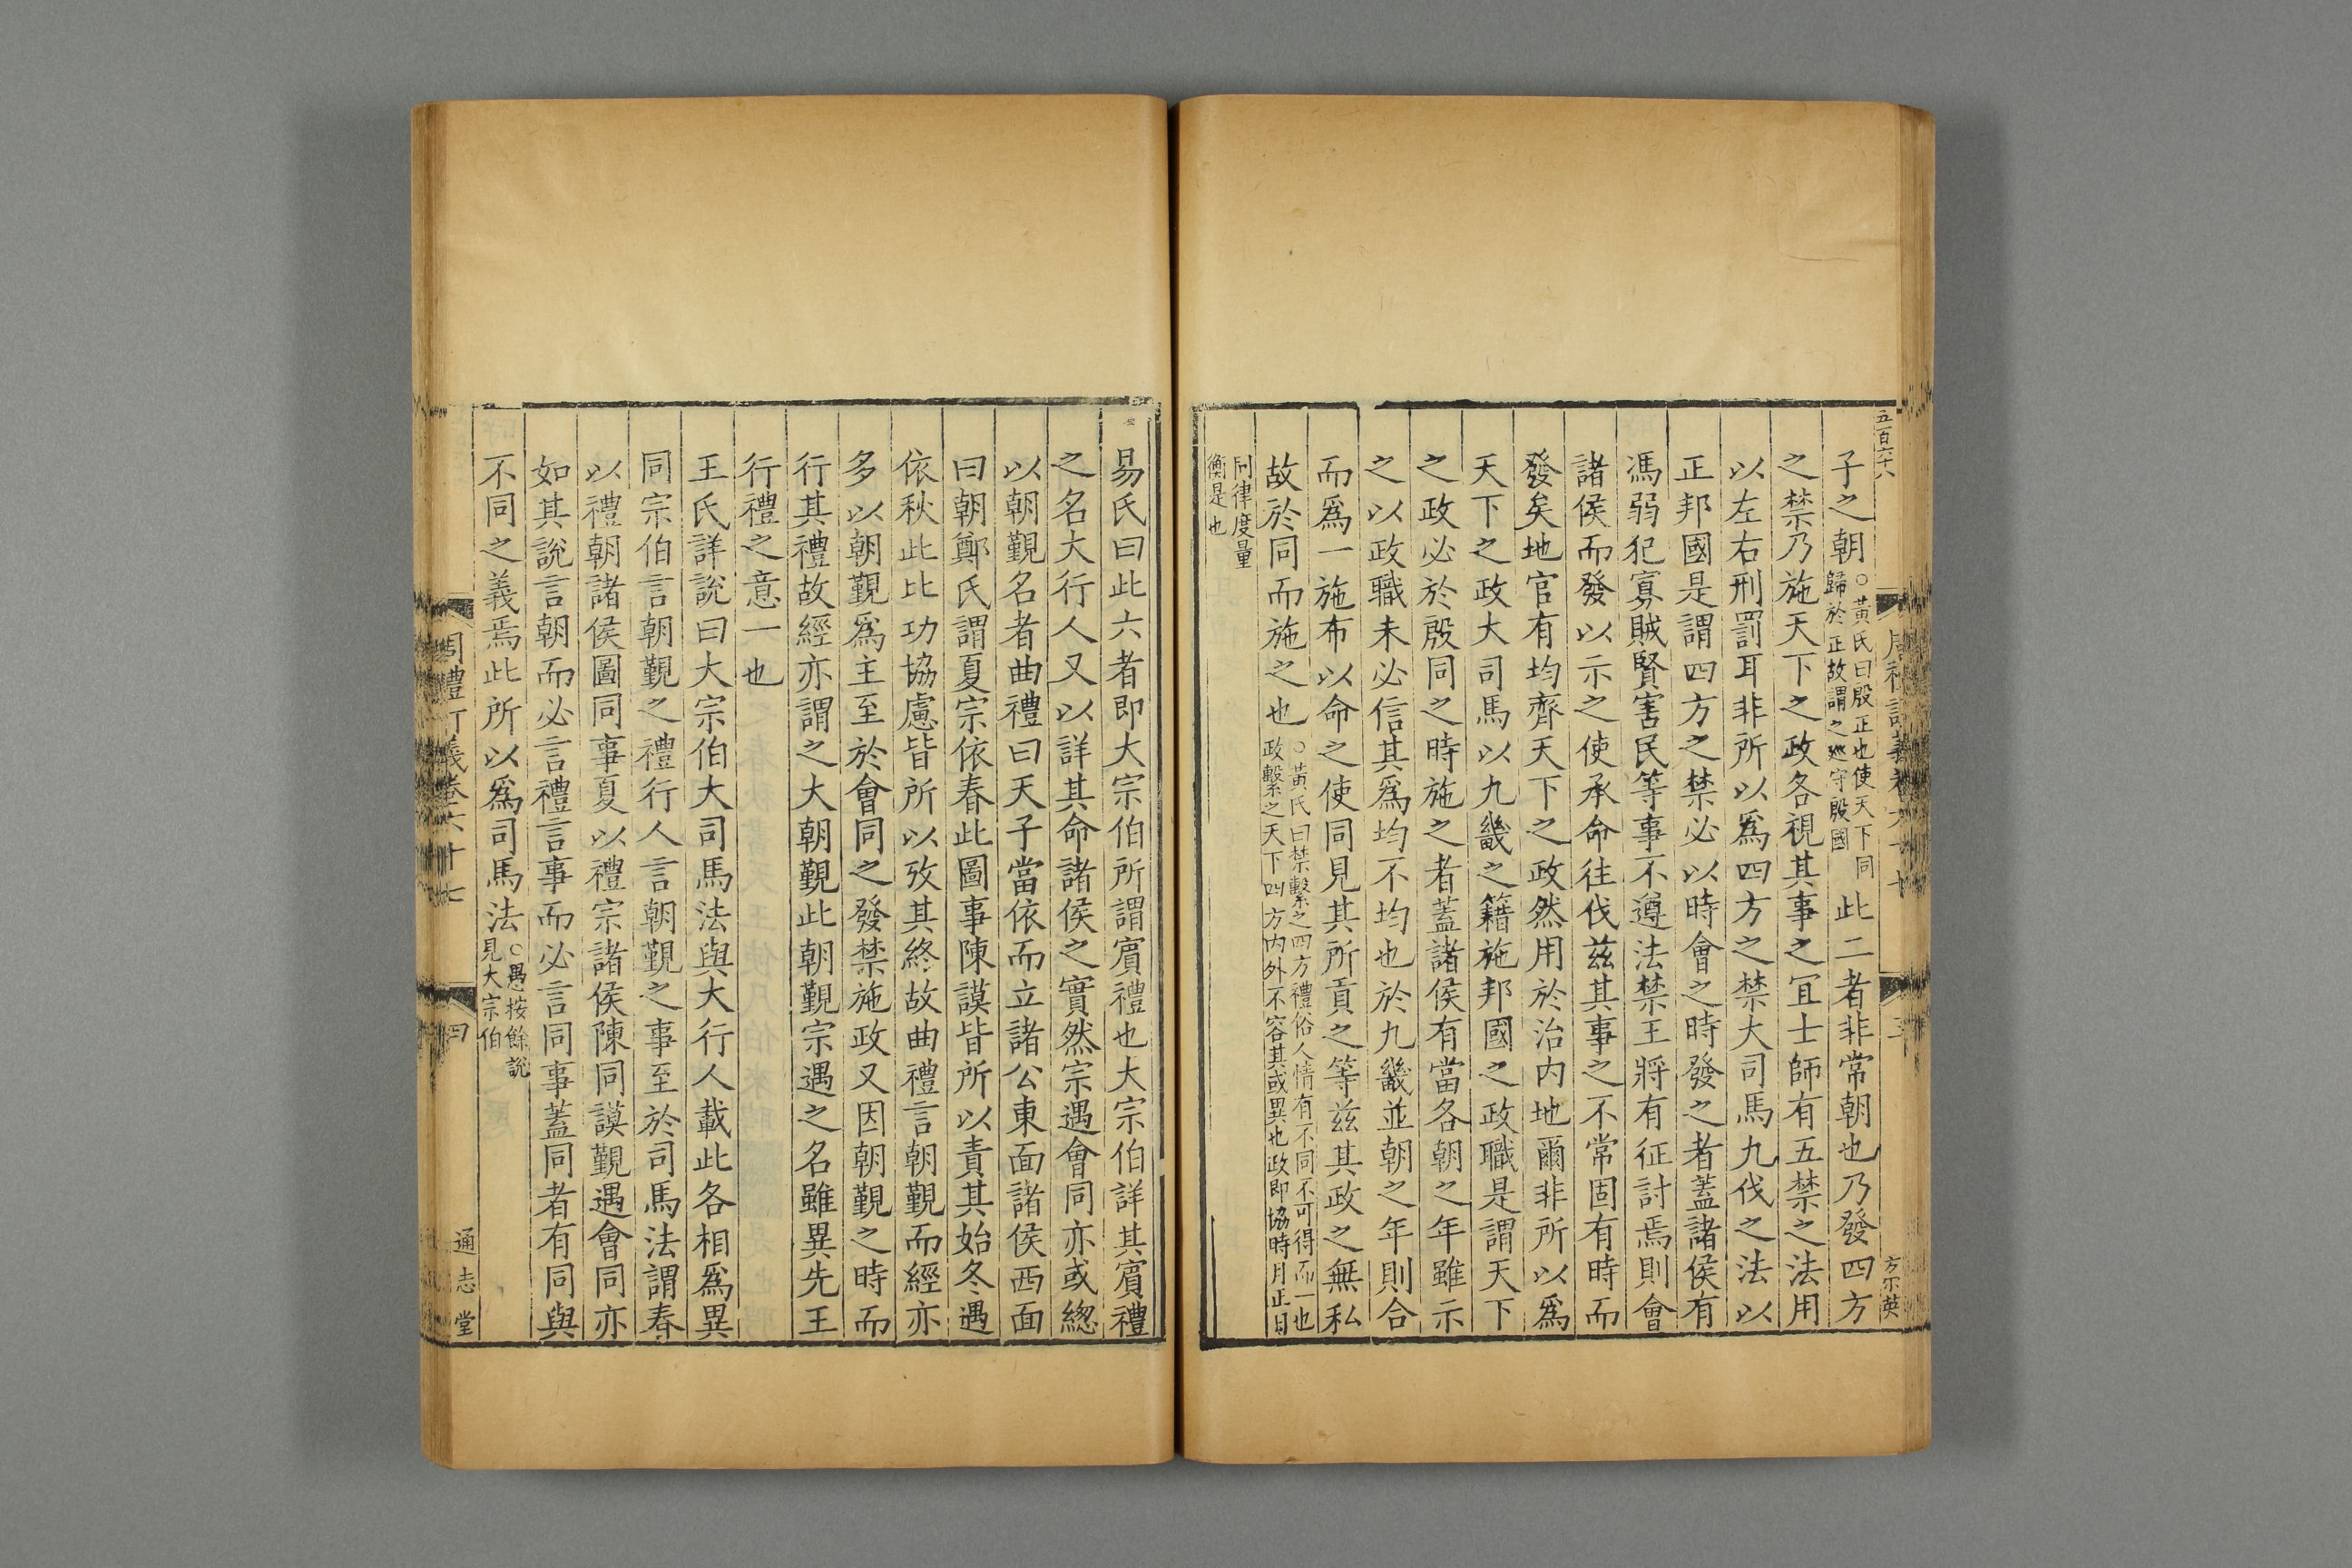 五百六十八
方不英
子之朝○黃氏曰殷正也使天下同歸於正故謂之廵守殷國此二者非常朝也乃發四方
之禁乃施天下之政各視其事之冝士師有五禁之法用
以左右刑罰耳非所以爲四方之禁大司馬九伐之法以
正邦國是謂四方之禁必以時會之時發之者蓋諸侯有
馮弱犯寡賊賢害民等事不遵法禁王將有征討焉則會
諸侯而發以示之使承命往伐茲其事之不常固有時而
發矣地官有均齊天下之政然用於治内地爾非所以爲
天下之政大司馬以九畿之籍施邦國之政職是謂天下
之政必於殷同之時施之者蓋諸侯有當各朝之年雖示
之以政職未必信其爲均不均也於九畿並朝之年則合
而爲一施布以命之使同見其所貢之等兹其政之無私
故於同而施之也○黃氏曰禁繫之四方禮俗人情有不同不可得而一也政繫之天下四方内外不容其或異也政即協時月正日
同律度量
衡是也
易氏曰此六者即大宗伯所謂賓禮也大宗伯詳其賓禮
之名大行人又以詳其命諸侯之實然宗遇會同亦或緫
以朝覲名者曲禮曰天子當依而立諸公東面諸侯西面
曰朝鄭氏謂夏宗依春此圖事陳謨皆所以責其始冬遇
依秋此比功協慮皆所以攷其終故曲禮言朝覲而經亦
多以朝覲爲主至於會同之發禁施政又因朝覲之時而
行其禮故經亦謂之大朝覲此朝覲宗遇之名雖異先王
行禮之意一也
王氏詳說曰大宗伯大司馬法與大行人載此各相爲異
同宗伯言朝覲之禮行人言朝覲之事至於司馬法謂春
以禮朝諸侯圖同事夏以禮宗諸侯陳同謨覲遇會同亦
如其說言朝而必言禮言事而必言同事蓋同者有同與
不同之義焉此所以爲司馬法○愚按餘說見大宗伯
周禮訂義卷六十七
四
通志堂